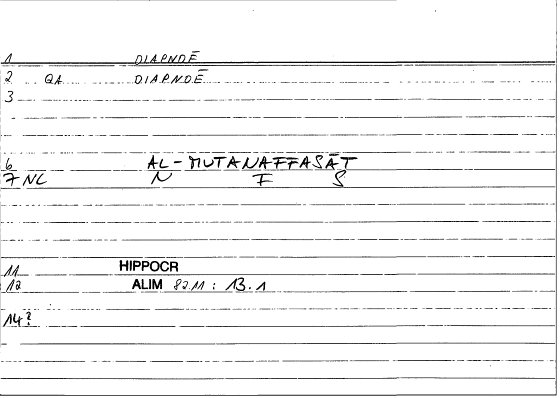 1 DIAPNOĒ
2 QA DIAPNOĒ
3
6 AL-MUTANAFFASĀT
7 NC N F S
11 HIPPOCR
12 ALIM 82.11 : 13.1
14?